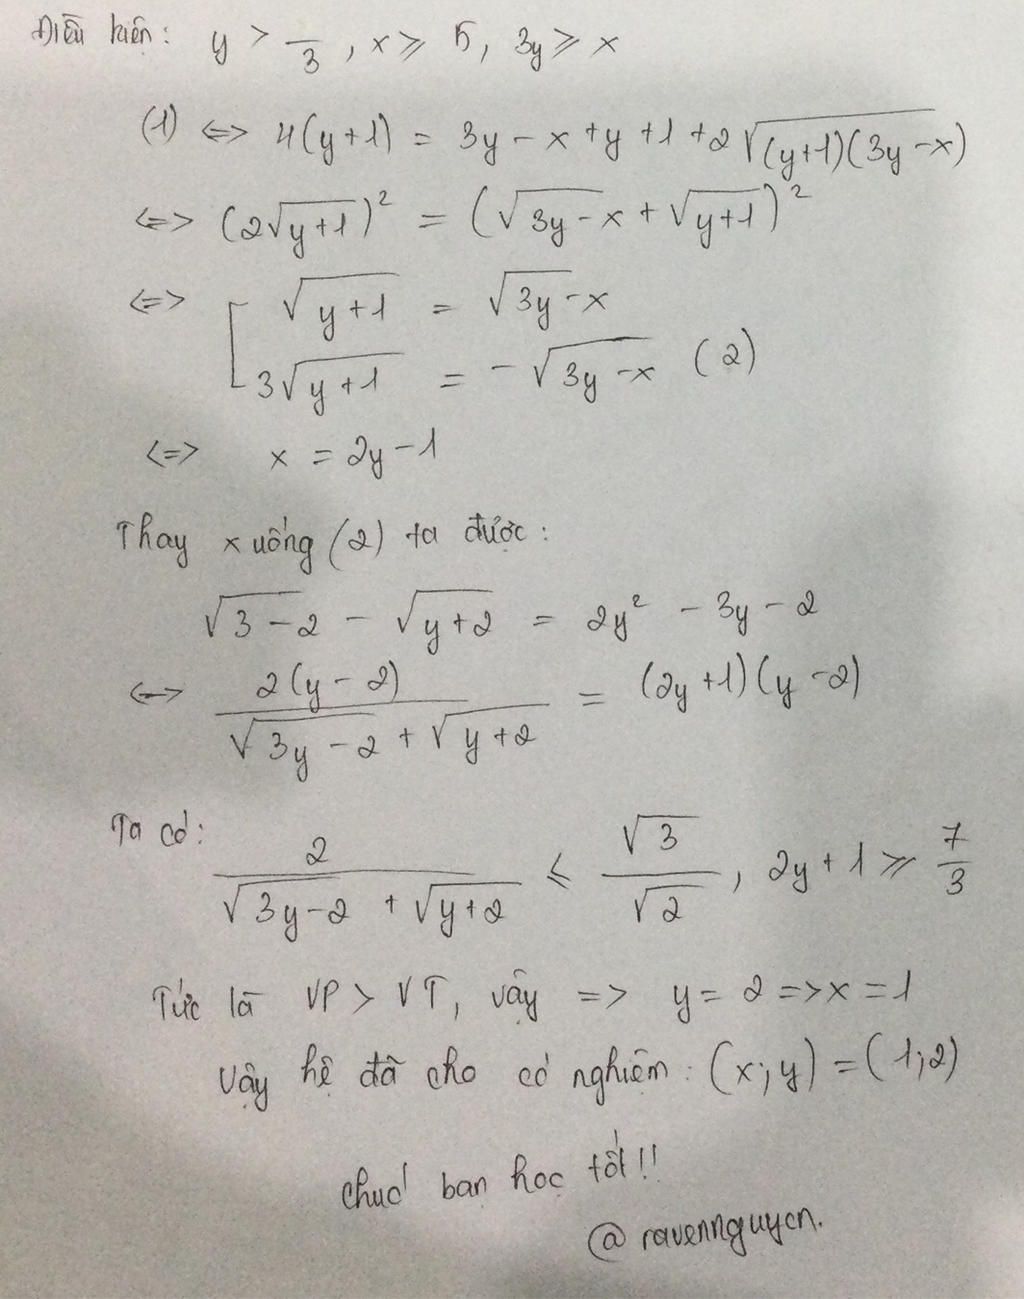 Điều kiện: y > /3, x ⩾ 5, 3y ⩾ x
(1) <=> 4(y+1) = 3y - x + y + 1 + 2√(y+1)(3y-x)
<=> (2√y+1)² = (√3y-x + √y+1)²
<=> [ √y+1 = √3y-x
3√y+1 = -√3y-x (2)
<=> x = 2y - 1
Thay xuống (2) ta được:
√3-2 - √y+2 = 2y² - 3y - 2
<=> 2(y-2) / (√3y-2 + √y+2) = (2y+1)(y-2)
Ta có: 2 / (√3y-2 + √y+2) ⩽ √3/√2, 2y+1 ⩾ 7/3
Tức là VP > VT, vậy => y = 2 => x = 1
Vậy hệ đã cho có nghiệm: (x;y) = (1;2)
chuć bạn học tốt!!
@ravennguyen.